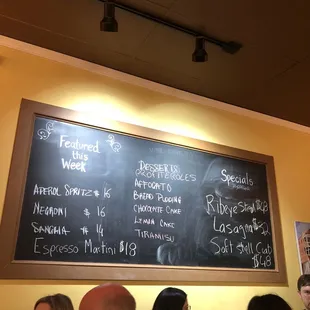 Featured
this
Week
APEROL SPRITZ $16
NEGRONI $16
SANGRIA $14
Espresso Martini $18
DESSERTS
AFFOGATO
BREAD PUDDING
CHOCOLATE CAKE
LEMON CAKE
TIRAMISU
Specials
Ribeye Steak $48
Lasagna $32
Soft Shell Crab
$48